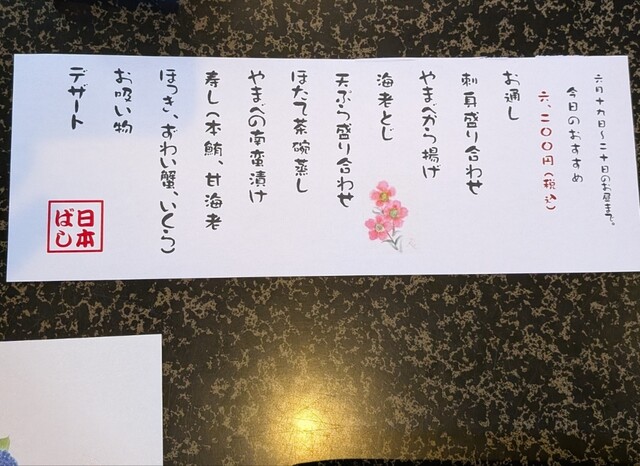 六月十九日〜二十日のお昼まで。
今日のおすすめ
六、二〇〇円（税込）
お通し
刺身盛り合わせ
やまべから揚げ
海老とじ
天ぷら盛り合わせ
ほたて茶碗蒸し
やまべの南蛮漬け
寿し（本鮪、甘海老
ほっき、ずわい蟹、いくら）
お吸い物
デザート
日本
ばし